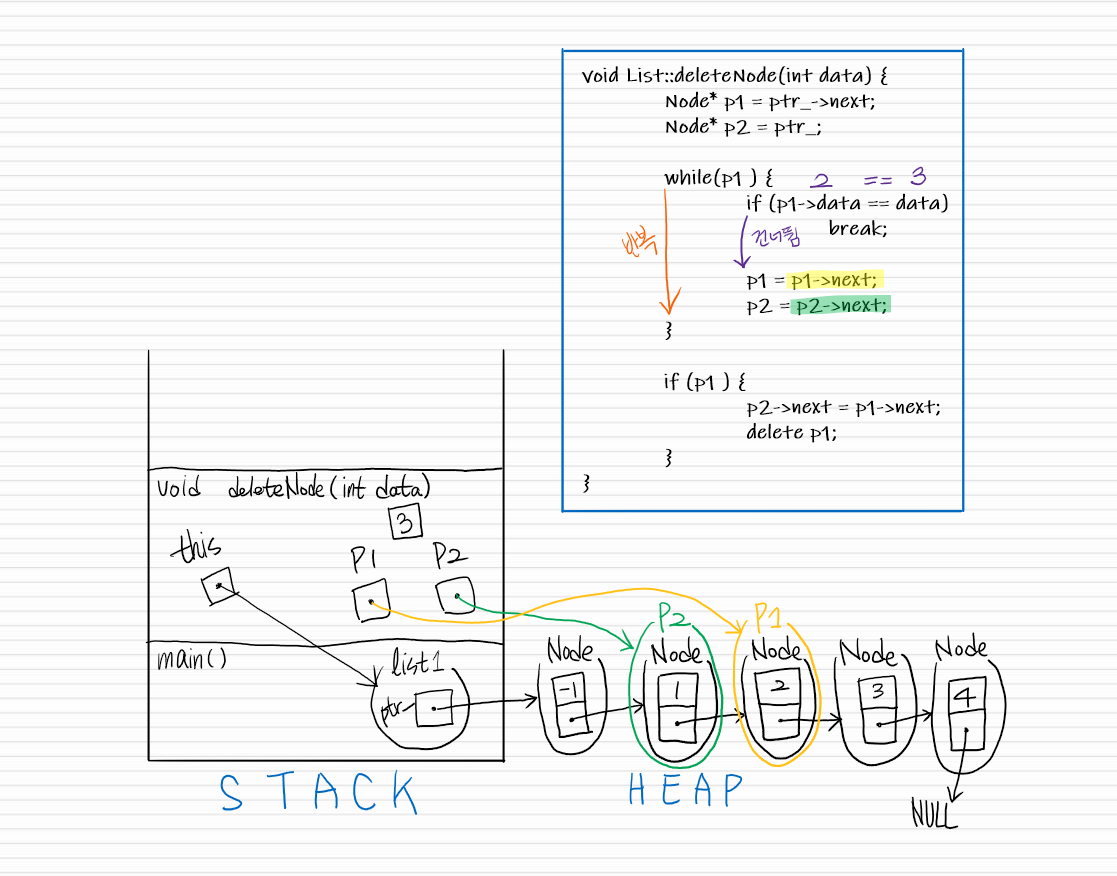 void List::deleteNode(int data) {
Node* p1 = ptr_->next;
Node* p2 = ptr_;
while(p1 ) { 2 == 3
if (p1->data == data)
반복 건너뜀 break;
p1 = p1->next;
p2 = p2->next;
}
if (p1 ) {
p2->next = p1->next;
delete p1;
}
}
void deleteNode(int data)
3
this P1 P2
P2 P1
main() list1 Node Node Node Node Node
ptr_ -1 1 2 3 4
STACK HEAP
NULL